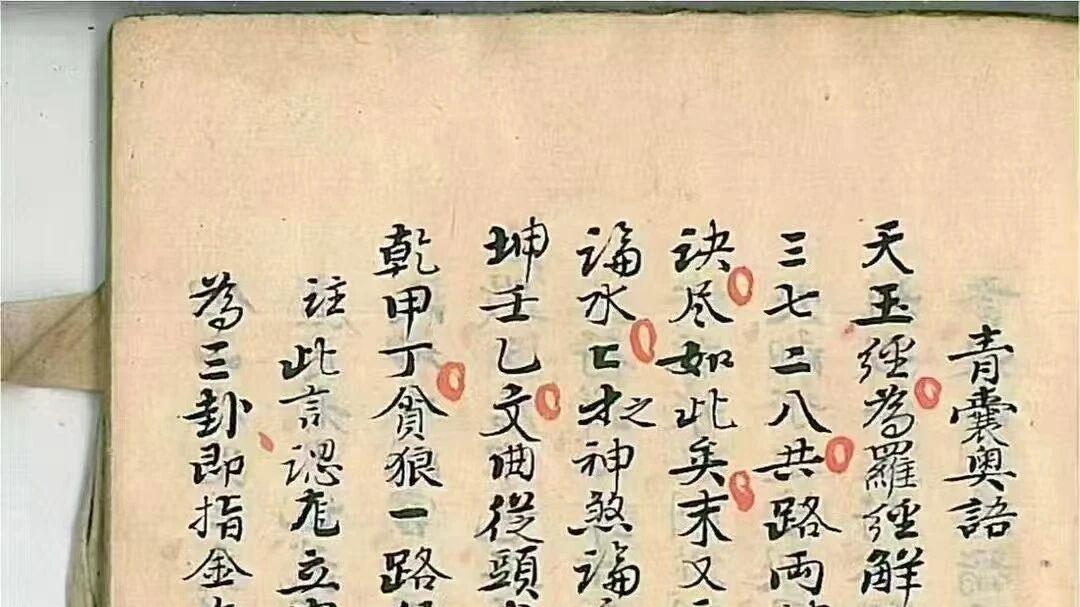 青囊奧語
天玉經為羅經解
三七二八共路兩
訣尽如此矣末又
論水亡才之神煞論
坤壬乙文曲從頭
乾甲丁貪狼一路
註此言認龍立
為三卦即指金